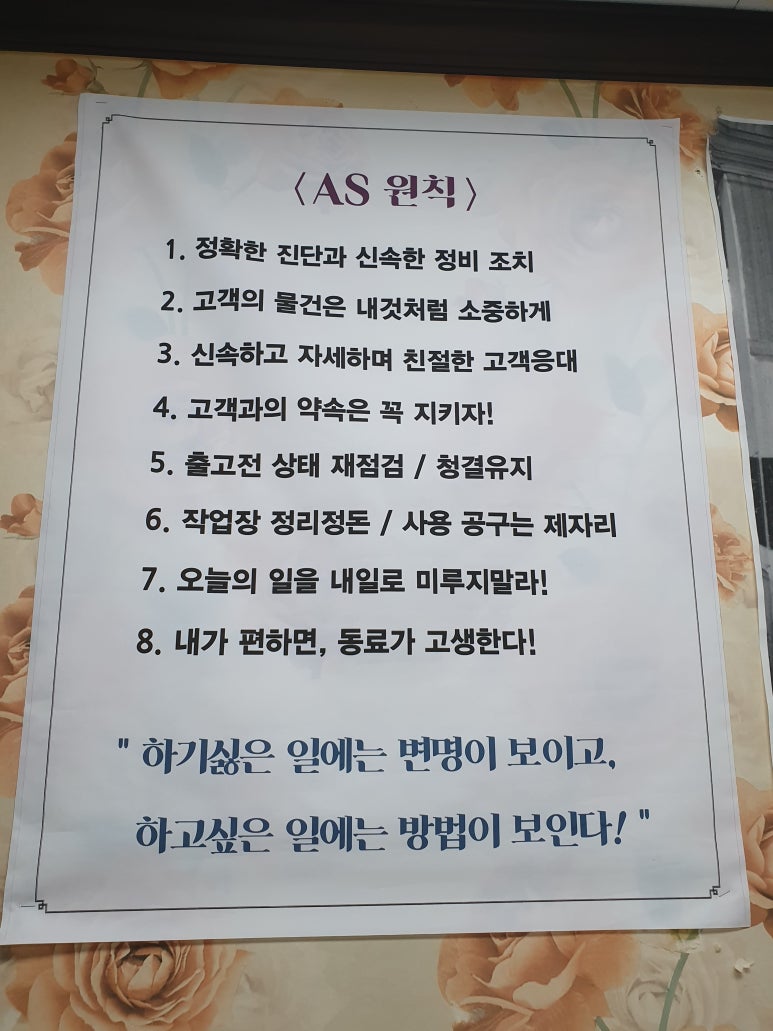 〈AS 원칙〉
1. 정확한 진단과 신속한 정비 조치
2. 고객의 물건은 내것처럼 소중하게
3. 신속하고 자세하며 친절한 고객응대
4. 고객과의 약속은 꼭 지키자!
5. 출고전 상태 재점검 / 청결유지
6. 작업장 정리정돈 / 사용 공구는 제자리
7. 오늘의 일을 내일로 미루지말라!
8. 내가 편하면, 동료가 고생한다!
" 하기싫은 일에는 변명이 보이고,
하고싶은 일에는 방법이 보인다! "